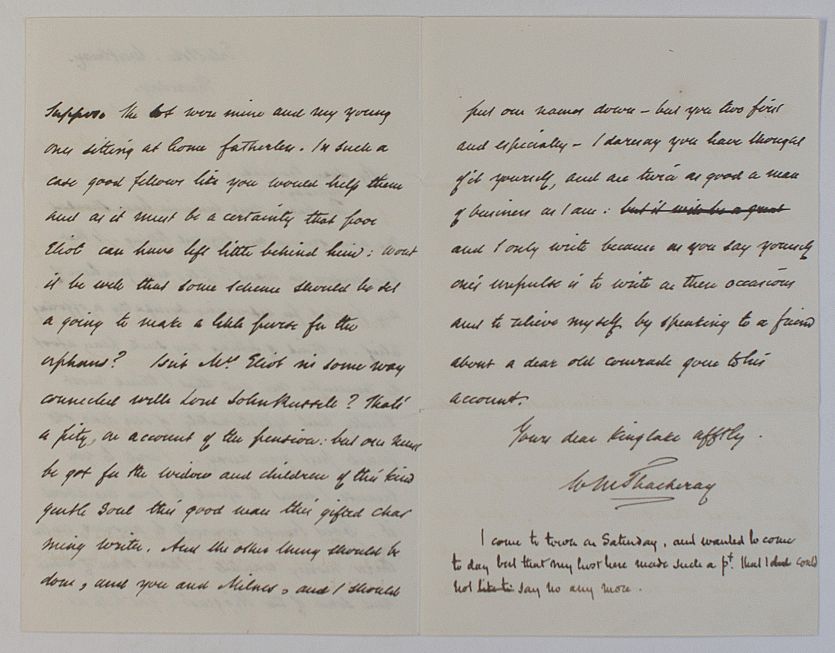 Suppose the lot were mine and my young
ones sitting at home fatherless. In such a
case good fellows like you would help them
and as it must be a certainty that poor
Eliot can have left little behind him: wont
it be well that some scheme should be set
a going to make a little purse for the
orphans? Isn't Mrs. Eliot in some way
connected with Lord John Russell? That's
a pity, on account of the pension: but one must
be got for the widow and children of this kind
gentle soul this good man this gifted char
ming writer. And the other thing should be
done, and you and Milnes, and I should
put our names down - but you two first
and especially - I daresay you have thought
of it yourself, and are twice as good a man
of business as I am: but it will be a great
and I only write because as you say yourself
one's impulse is to write on these occasions
and to relieve myself by speaking to a friend
about a dear old comrade gone to his
account.
Yours dear Kinglake afftly.
W M Thackeray
I come to town on Saturday, and wanted to come
to day but that my host here made such a pt. that I did could
not like to say no any more.